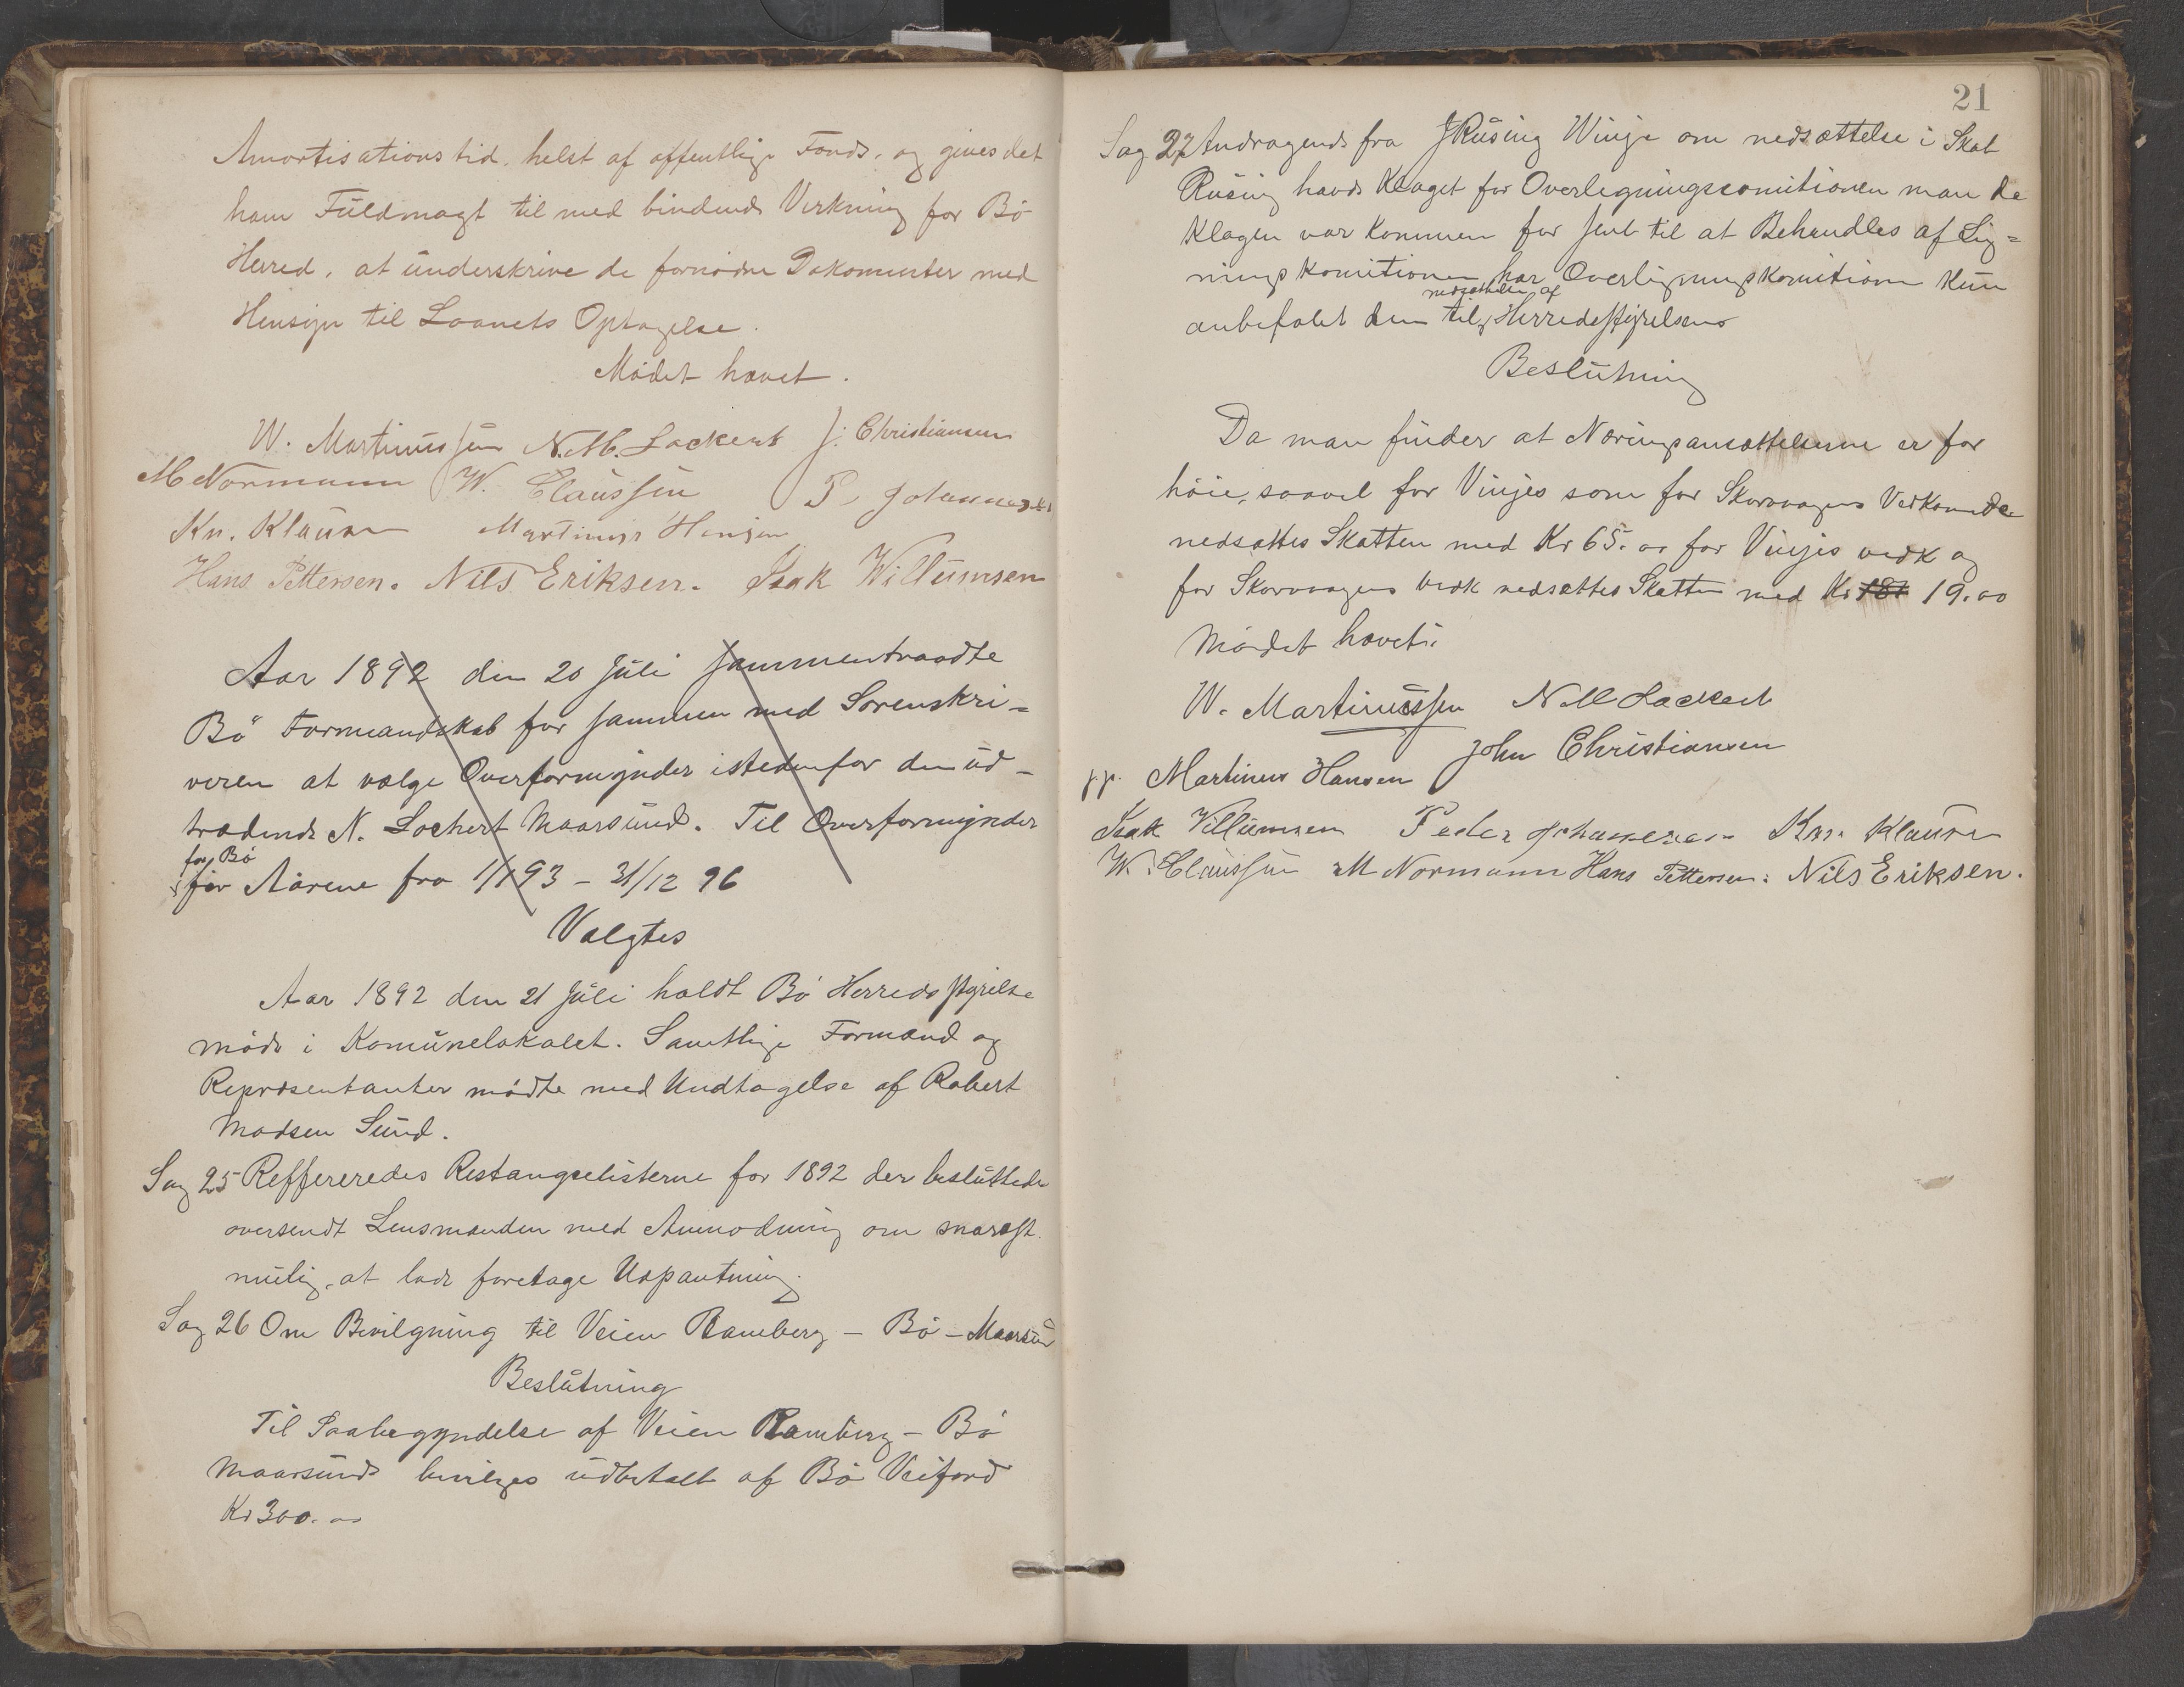 Amortisationstid, helst af offentlige Fonds, og gives det
ham Fuldmagt til med bindende Virkning for Bö
Herred, at underskrive de fornödne Dokumenter med
Hensyn til Laanets Optagelse.
Mödet hævet.
W. Martinussen N. M. Lockert J. Christiansen
M Normann W. Claussen P. Johannesen
Kn. Klausen Martinus Hansen
Hans Pettersen. Nils Eriksen. Isak Willumsen
Aar 1892 den 20 Juli sammentraadte
Bö Formandskab for sammen med Sorenskri=
veren at vælge Overformynder istedenfor den ud-
trædende N. Lochert Maarsund. Til Overformynder
for Bö
for Aarene fra 1/1 93 - 31/12 96
Valgtes
Aar 1892 den 21 Juli holdt Bö Herredsstyrelse
möde i Komunelokalet. Samtlige Formænd og
Repræsentanter mödte med Undtagelse af Robert
Madsen Sund.
Sag 25 Reffereredes Restangselisterne for 1892 der besluttedes
oversendt Lensmanden med Anmodning om snarest
mulig at lade foretage Udpantning.
Sag 26 Om Bevilgning til Veien Ramberg - Bö - Maarsund
Beslutning
Til Paabegyndelse af Veien Ramberg - Bö
Maarsund bevilges udbetalt af Bö Veifond
Kr 300.00
21
Sag 27 Andragende fra J Rüsing Winje om nedsættelse i Skat
Rüsing havde klaget for Overlegningscomitionen man da
Klagen var kommen for sent til at Behandles af Lig=
ningskomitionen har Overligningskomitionen kun
nedsættelse af
anbefalet dem til Herredsstyrelsens
Beslutning
Da man finder at Næringsansættelserne er for
höie, saavel for Vinjes som for Skorvagens Vedkomende
nedsættes Skatten med Kr 65.00 for Vinjes vedk og
for Skorvagens vedk nedsættes Skatten med Kr 181 19.00
Mödet hævet.
W. Martinussen N M Lockert
pp. Martinus Hansen John Christiansen
Isak Villumsen Peder Johannesen Kn. Klausen
W. Claussen M Normann Hans Pettersen. Nils Eriksen.